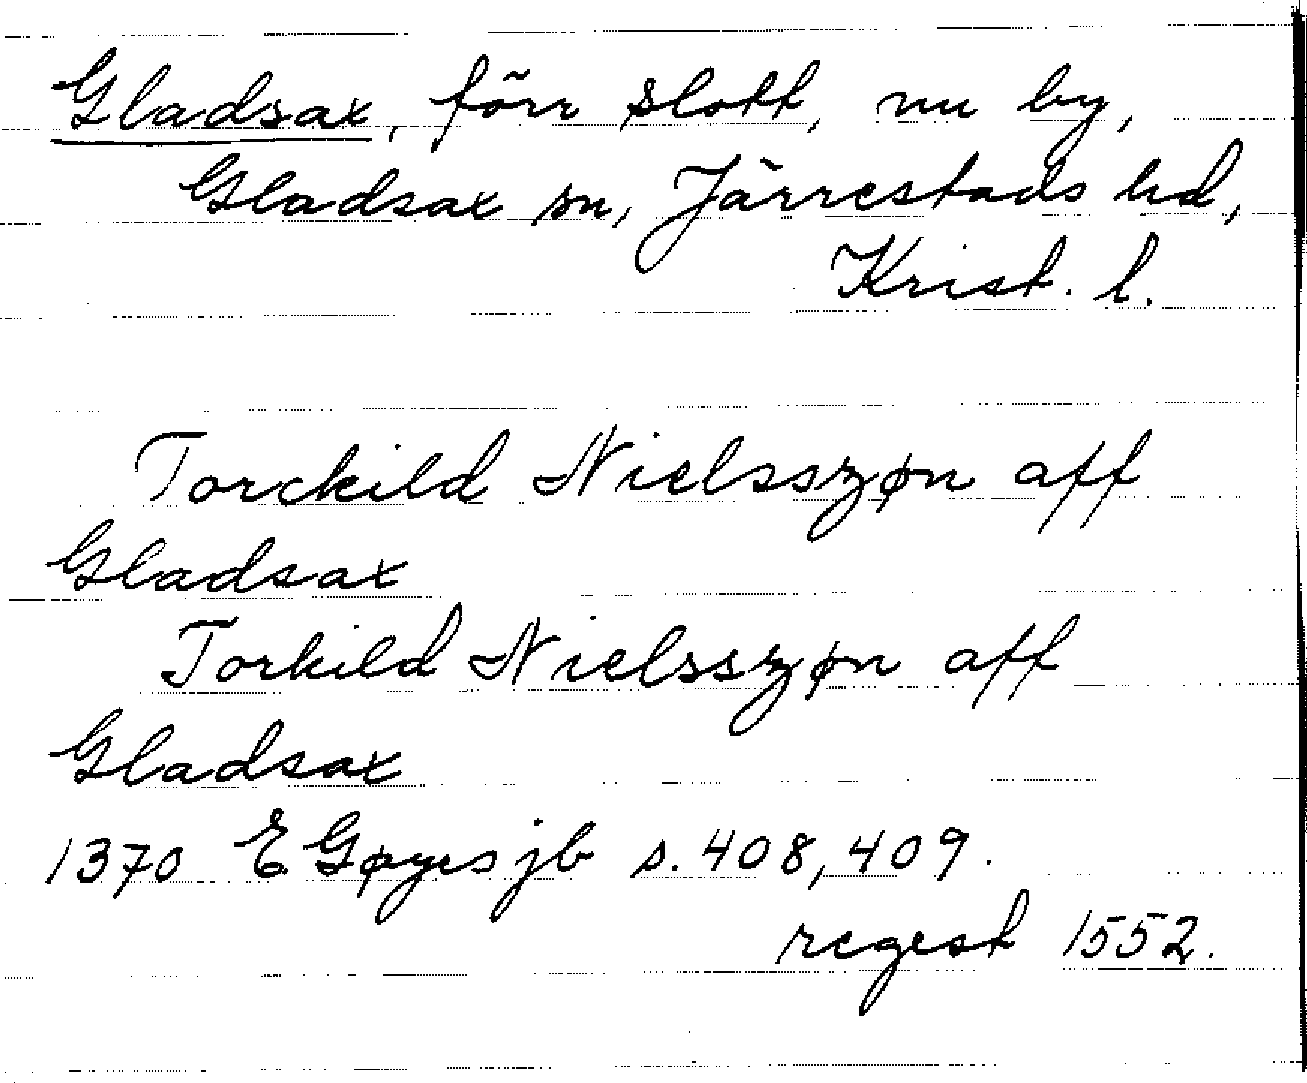 Gladsax, förr slott, nu by,
Gladsax sn, Järrestads hd,
Krist. l.
Torckild Nielsszøn aff
Gladsax
Torkild Nielsszøn aff
Gladsax
1370 E Gøyes jb s. 408, 409.
regest 1552.